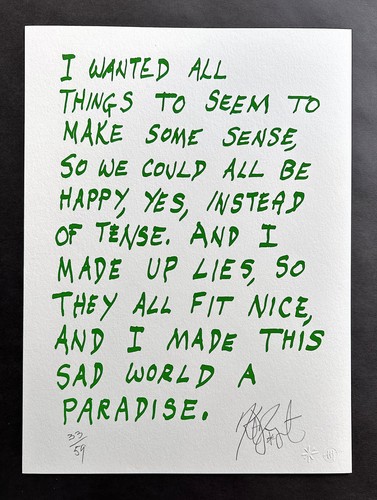 I WANTED ALL
THINGS TO SEEM TO
MAKE SOME SENSE,
SO WE COULD ALL BE
HAPPY, YES, INSTEAD
OF TENSE. AND I
MADE UP LIES, SO
THEY ALL FIT NICE,
AND I MADE THIS
SAD WORLD A
PARADISE.
33/59